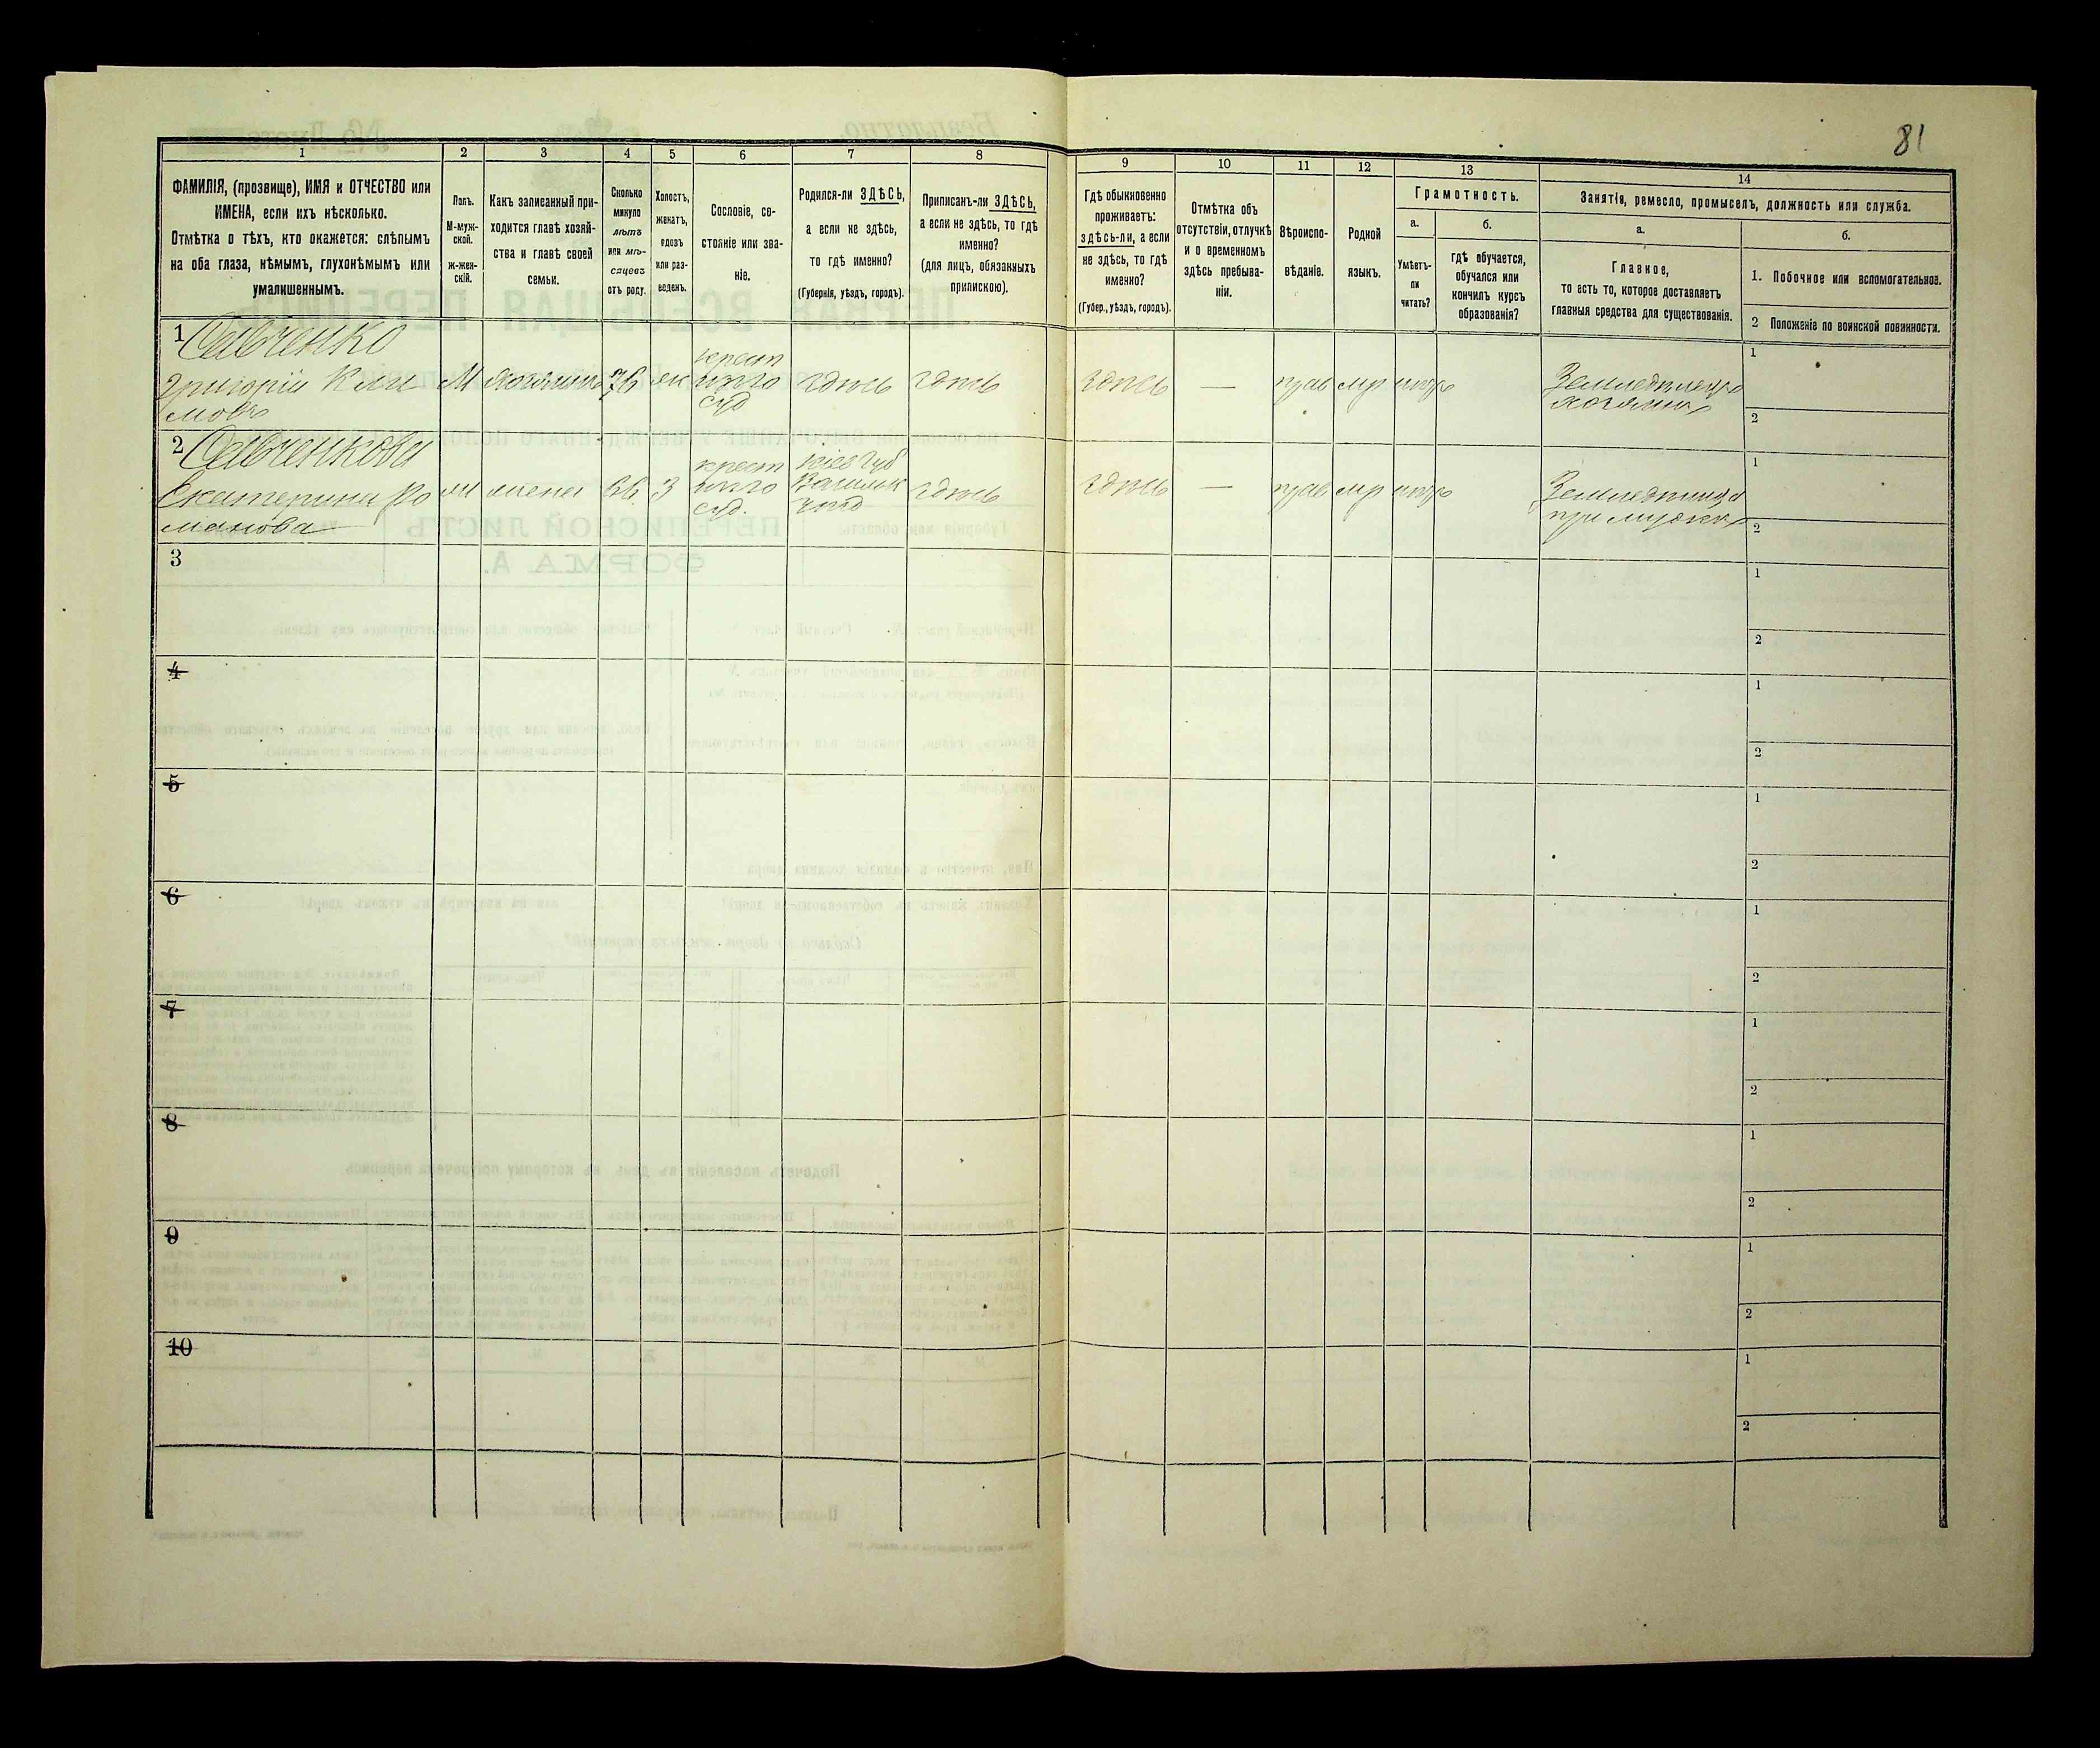 81
1
2
3
4
5
6
7
8
ФАМИЛІЯ, (прозвище), ИМЯ и ОТЧЕСТВО или
ИМЕНА, если ихъ нѣсколько.
Отмѣтка о тѣхъ, кто окажется: слѣпымъ
на оба глаза, нѣмымъ, глухонѣмымъ или
умалишеннымъ.
Полъ.
М-муж-
ской.
Ж-жен-
скій.
Какъ записанный при-
ходится главѣ хозяй-
ства и главѣ своей
семьи.
Сколько
минуло
лѣтъ
или мѣ-
сяцевъ
отъ роду.
Холостъ,
женатъ,
вдовъ
или раз-
веденъ.
Сословіе, со-
стояніе или зва-
ніе.
Родился-ли ЗДѢСЬ,
а если не здѣсь,
то гдѣ именно?
(Губернія, уѣздъ, городъ).
Приписанъ-ли ЗДѢСЬ,
а если не здѣсь, то гдѣ
именно?
(для лицъ, обязанныхъ
припискою).
9
10
11
12
13
14
Гдѣ обыкновенно
проживаетъ:
здѣсь-ли, а если
не здѣсь, то гдѣ
именно?
(Губер., уѣздъ, городъ).
Отмѣтка объ
отсутствіи, отлучкѣ
и о временномъ
здѣсь пребыва-
ніи.
Вѣроиспо-
вѣданіе.
Родной
языкъ.
Грамотность.
а.
б.
Умѣетъ-
ли
читать?
гдѣ обучается,
обучался или
кончилъ курсъ
образованія?
Занятія, ремесло, промыселъ, должность или служба.
а.
б.
Главное,
то есть то, которое доставляетъ
главныя средства для существованія.
1. Побочное или вспомогательное.
2 Положеніе по воинской повинности.
1 Савченко
Григорій Кли
мовъ
М
хозяинъ
76
жен
крест
суд
здѣсь
здѣсь
здѣсь
—
прав
мр
Земледѣлецъ
хозяинъ
1
2
2 Савченкова
Екатерина Ро
манова
жена
66
З
крест
суд.
Кіев губ
Васильк
уѣзд
здѣсь
здѣсь
—
прав
мр
при мужѣ
1
2
3
1
2
4
1
2
5
1
2
6
1
2
7
1
2
8
1
2
9
1
2
10
1
2